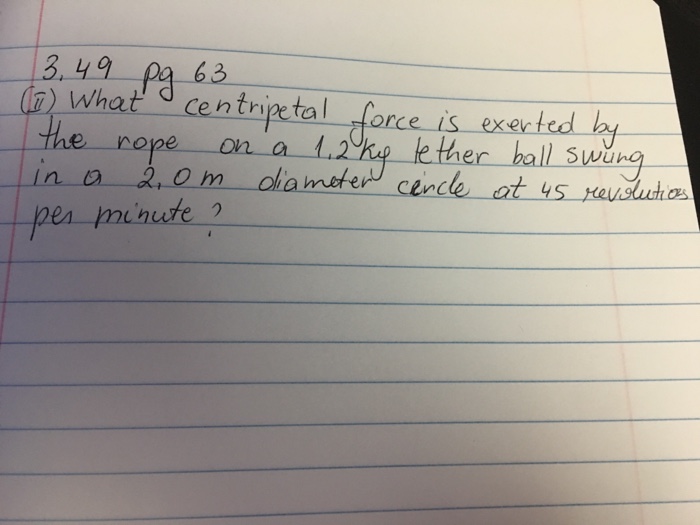 3.49 pg 63
(II) What centripetal force is exerted by
the rope on a 1.2kg tether ball swung
in a 2.0m diameter circle at 45 revolutions
per minute?